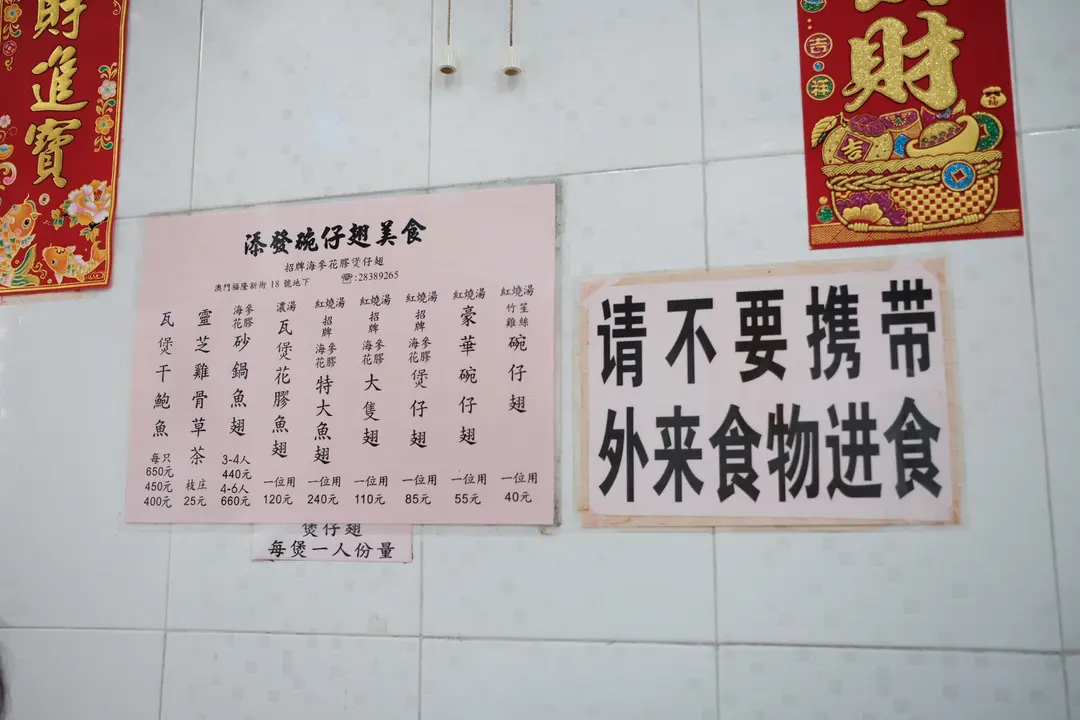 財進寶
財
吉
祥
吉
添發碗仔翅美食
招牌海參花膠煲仔翅
澳門福隆新街 18 號地下 ☎:28389265
紅燒湯 竹笙雞絲 碗仔翅 一位用 40元
紅燒湯 豪華碗仔翅 一位用 55元
紅燒湯 招牌 海參花膠 煲仔翅 一位用 85元
紅燒湯 招牌 海參花膠 大隻翅 一位用 110元
紅燒湯 招牌 海參花膠 特大魚翅 一位用 240元
濃湯 瓦煲花膠魚翅 一位用 120元
海參花膠 砂鍋魚翅 3-4人 440元 4-6人 660元
靈芝雞骨草茶 枝庄 25元
瓦煲干鮑魚 每只 650元 450元 400元
煲仔翅
每煲一人份量
请不要携带
外来食物进食